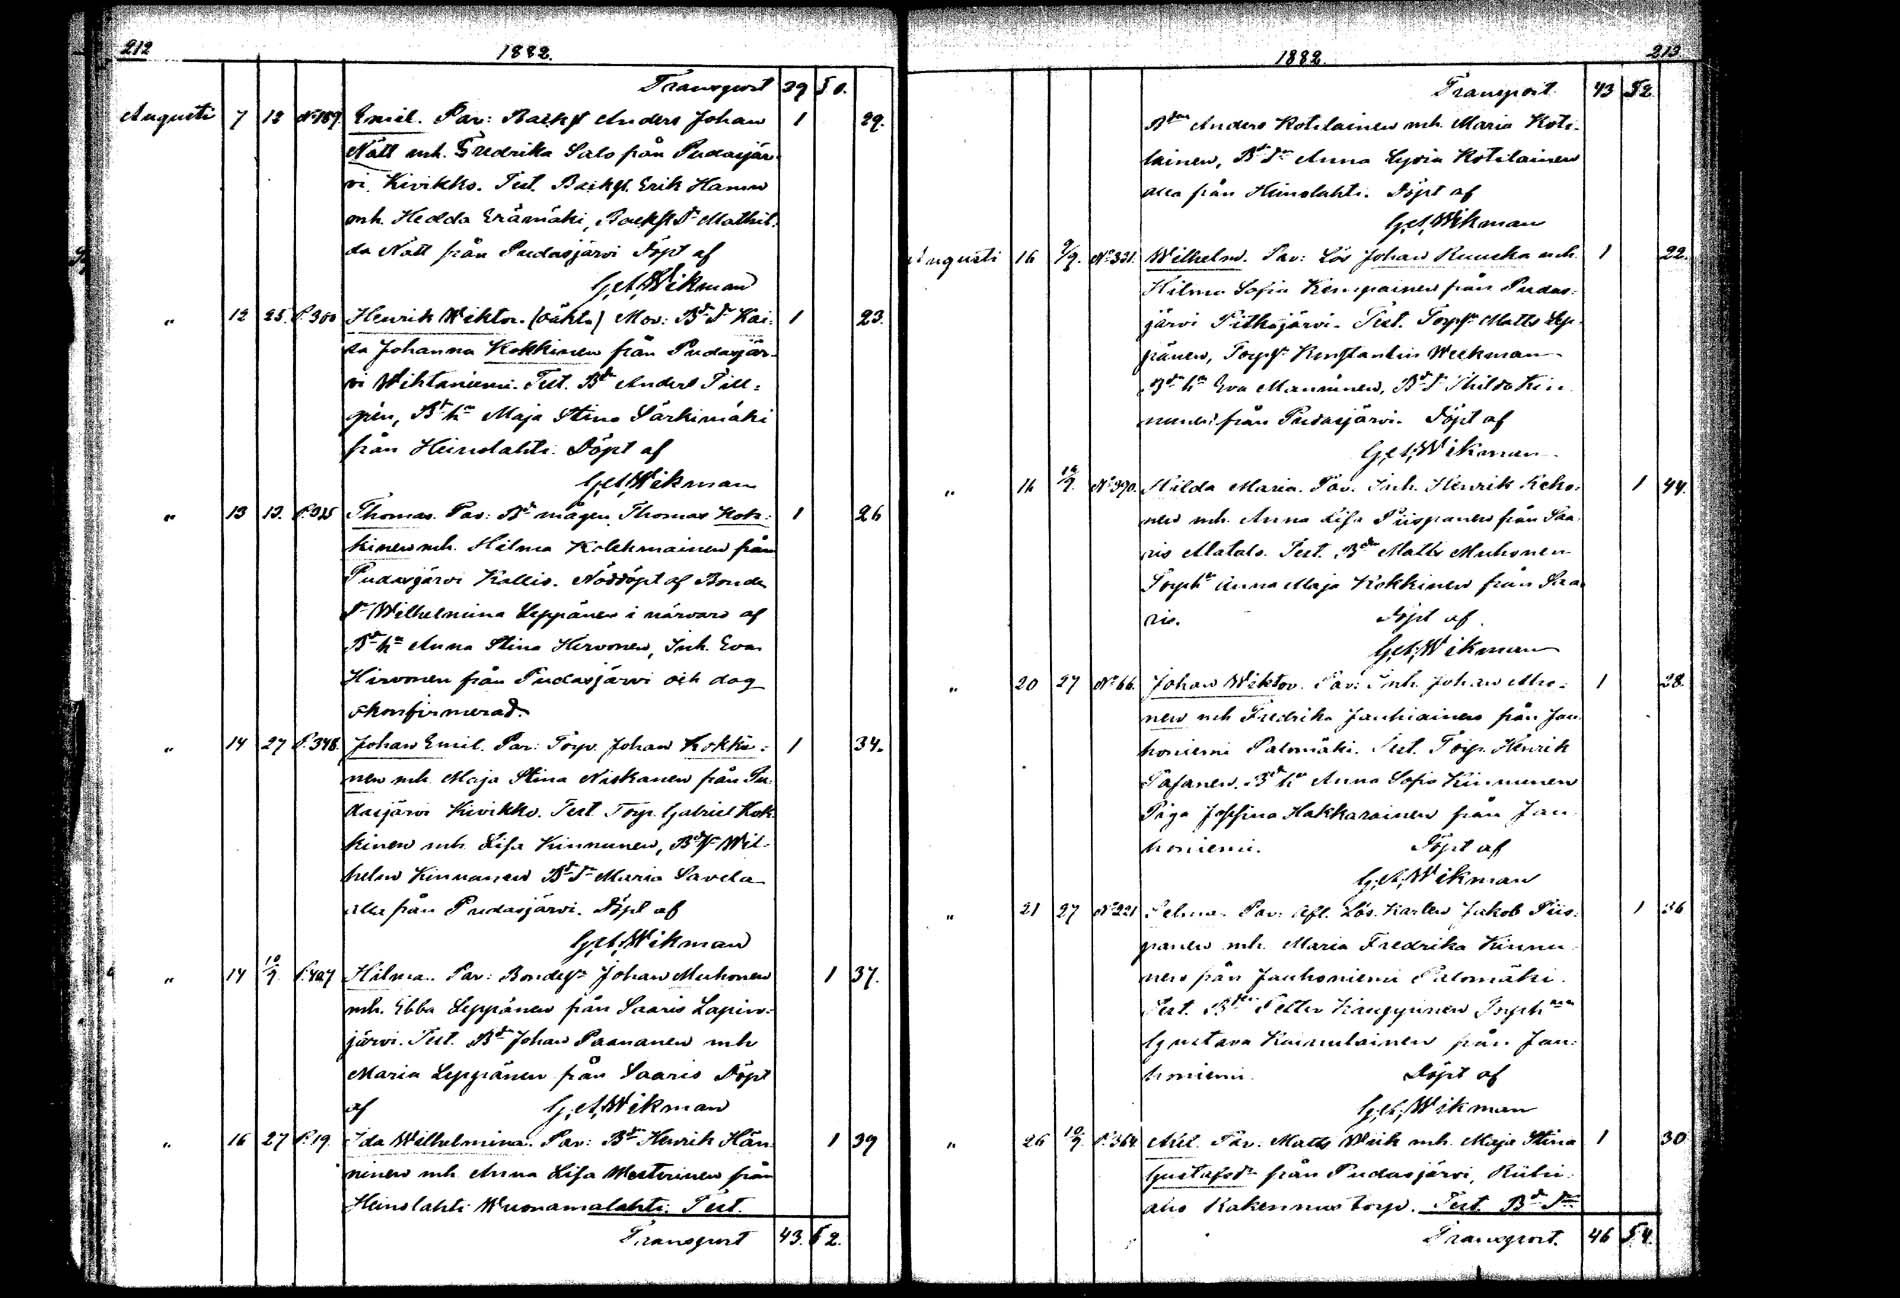 212
1882.
Transport 39 50.
Augusti 7 12 N:189. Emil. Par: Backst Anders Johan 1 29.
Nätt mh. Fredrika Salo från Pudasjär-
vi Kivikko. Test. Backst. Erik Hamen
mh. Hedda Erämäki, Backst Dr Mathil-
da Nätt från Pudasjärvi Döpt af
G,A,Wikman
„ 12 25. P.300 Henrik Wiktor. (oäkta) Mor: Bd Dr Kai- 1 23.
sa Johanna Kokkinen från Pudasjär-
vi Wihtaniemi. Test. Bdn Anders Till-
grén, Bd hu Maja Stina Särkimäki
från Heinolahti. Döpt af
G,A,Wikman
„ 13 13. P.325 Thomas. Par: Bd mågen Thomas Kok- 1 26
kinen mh. Hilma Kolehmainen från
Pudasjärvi Kallis. Nöddöpt af Bonde
Dr Wilhelmina Leppänen i närvaro af
Bd hu Anna Stina Hirvonen, Inh. Eva
Hirvonen från Pudasjärvi och dag
konfirmerad.
„ 14 27 P.348. Johan Emil. Par: Torp. Johan Kokki- 1 34.
nen mh. Maja Stina Niskanen från Pu-
dasjärvi Kivikko. Test. Torp. Gabriel Kok-
kinen mh. Lisa Kinnunen, Bd Wil-
helm Kinnunen Bd Dr Maria Savela
alla från Pudasjärvi. Döpt af
G,A,Wikman
„ 14 10/9. P.407 Hilma. Par: Bondes Johan Muhonen 1 37.
mh. Ebba Leppänen från Saaris Lapin-
järvi. Test. Bdn Johan Paananen mh
Maria Leppänen från Saaris Döpt
af G,A,Wikman
„ 16 27 P.19. Ida Wilhelmina. Par: Bdn Henrik Hän- 1 39
ninen mh. Anna Lisa Westerinen från
Heinolahti Wuonamalahti. Test.
Transport 43. 52.
1882
213
Transport 43 52
Bden Anders Kotilainen mh. Maria Koti-
lainen, Bd Dr Anna Lyvia Kotilainen
alla från Heinolahti. Döpt af
G,A,Wikman
Augusti 16 9/9. No321. Wilhelm. Par: Lös Johan Ruuska mh. 1 22.
Hilma Sofia Kemppainen från Pudas-
järvi Pitkäjärvi. Test. Torp Matts Lep-
pänen, Torp Konstantin Weckman
Bd hu Eva Manninen, Bd Dr Hilda Kin-
nunen från Pudasjärvi. Döpt af
G,A,Wikman
„ 16 10/9. No390. Hilda Maria. Par. Inh. Henrik Keko- 1 44.
nen mh. Anna Lisa Piispanen från Saa-
ris Matalo. Test. Bden Matts Muhonen
Torphu Anna Maja Kokkinen från Saa-
ris. Döpt af
G,A,Wikman
„ 20 27 No66. Johan Wiktor. Par: Inh. Johan 1 28.
nen mh Fredrika Jauhiainen från Jau-
honiemi Palomäki. Test. Torp. Henrik
Bd hu Anna Sofia Kinnunen
Piga Josefina Hakkarainen från Jau-
honiemi. Döpt af
G,A,Wikman
„ 21 27 No221 Selma. Par: Afl. Lös. Karlen Jakob Piis- 1 36
panen mh. Maria Fredrika Kinnu-
nen från Jauhoniemi Palomäki.
Test. Bden Petter Kauppinen Torph
Gustava Kainulainen från Jau-
honiemi. Döpt af
G,A,Wikman
„ 26 10/9. P.364 Axel. Par: Matts Wiik mh. Maja Stina 1 30
Gustafsdr från Pudasjärvi,
Rakennus torp. Test. Bd
Transport. 46 54.